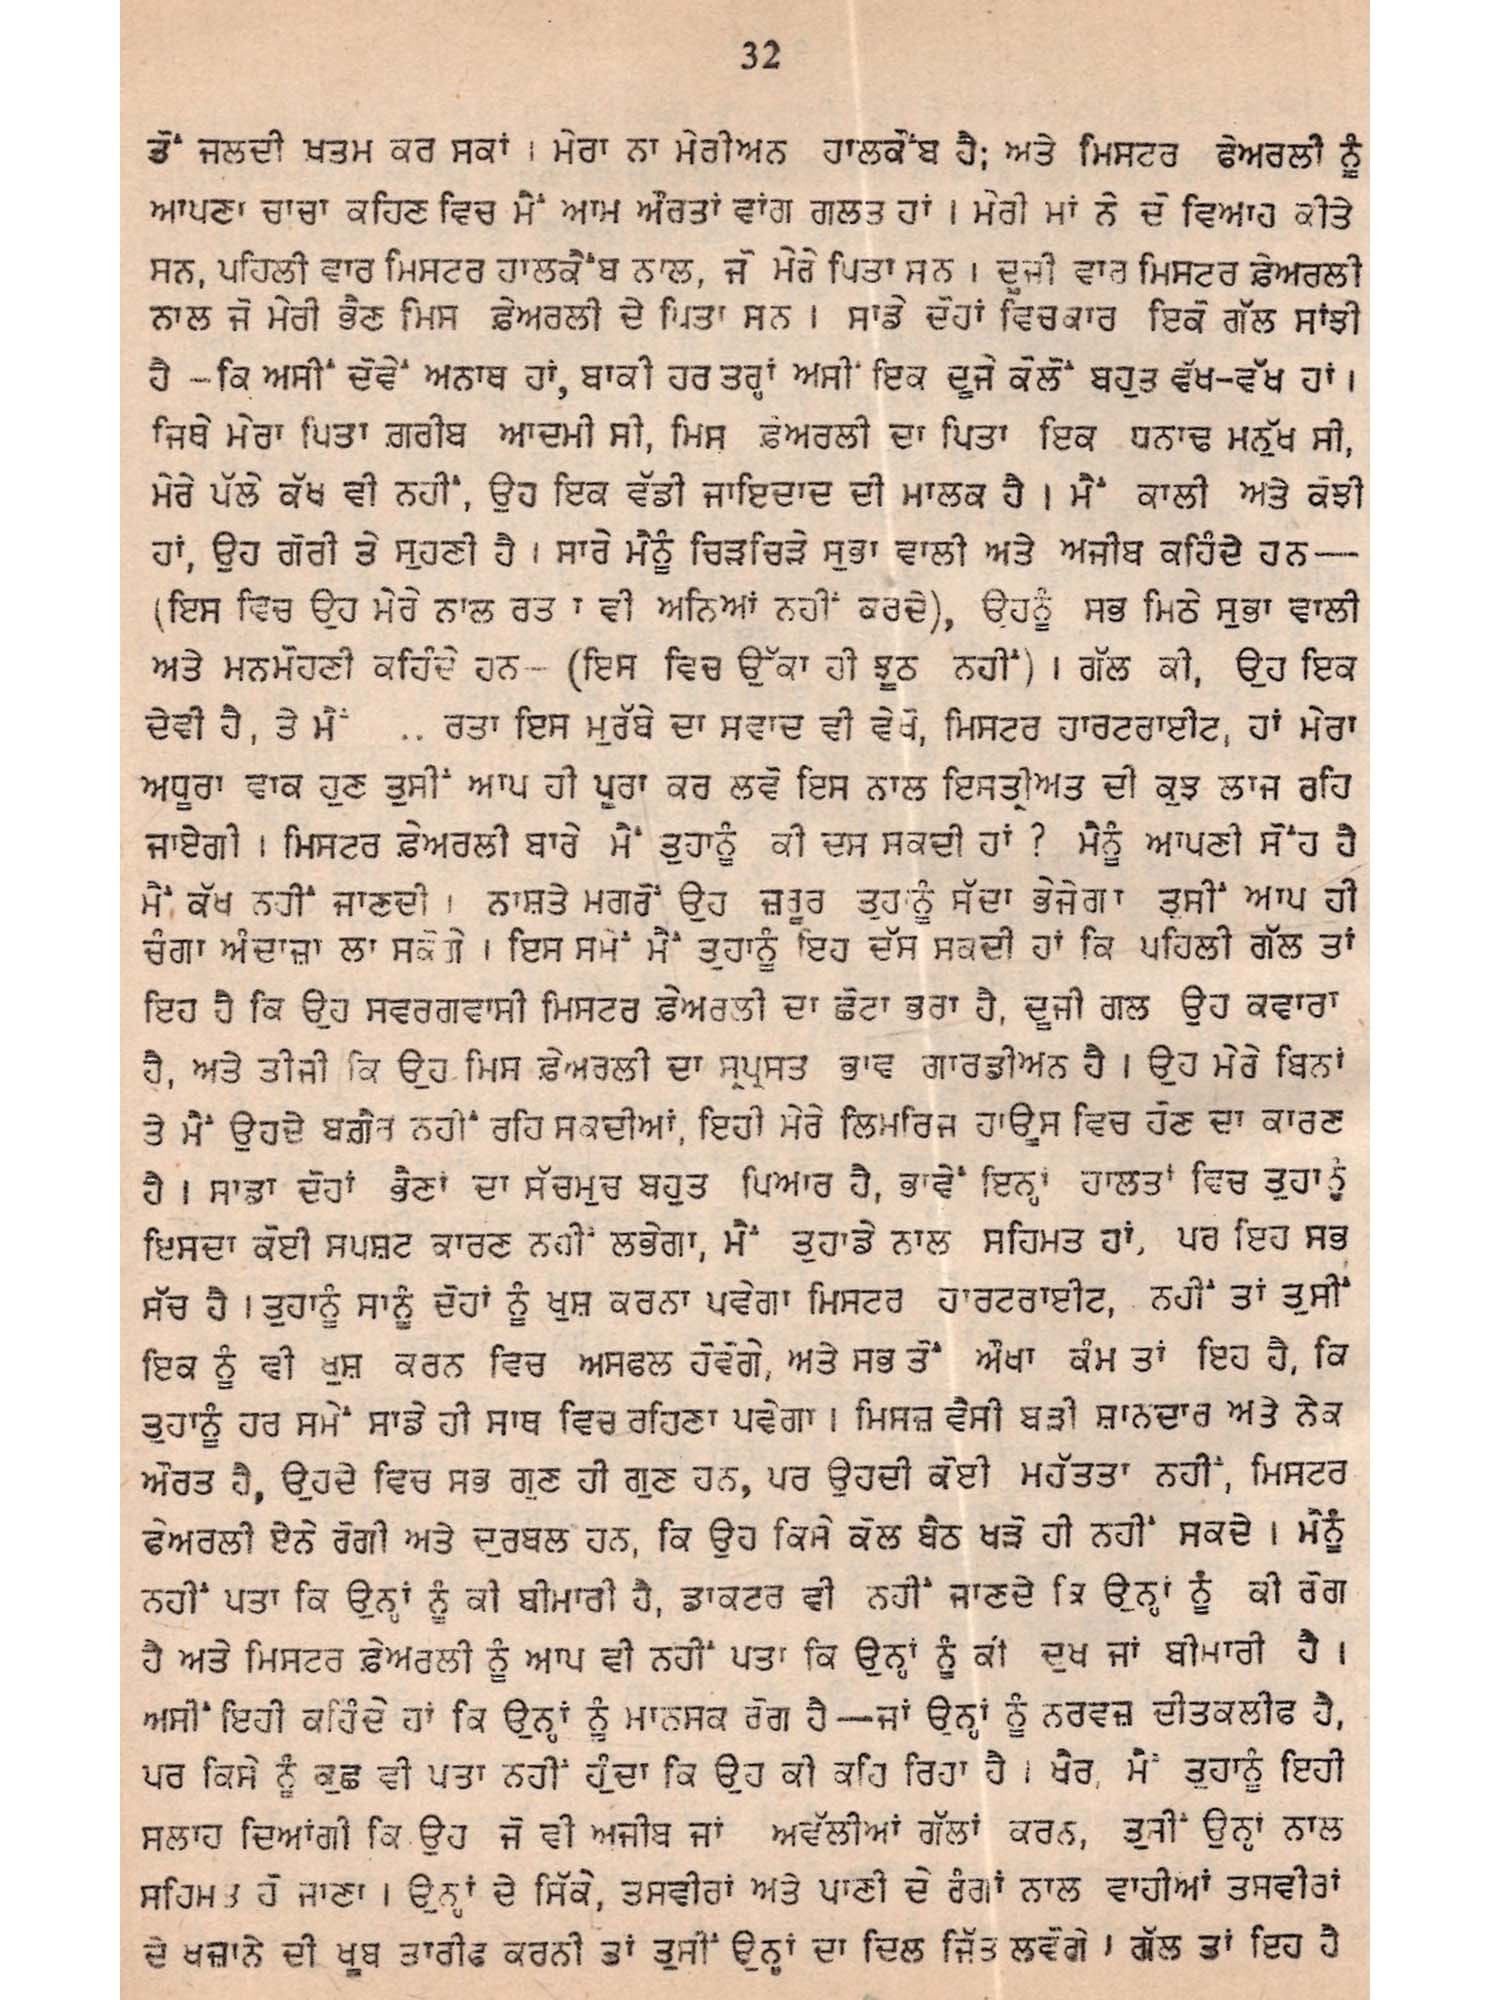 32
ਤੋਂ ਜਲਦੀ ਖ਼ਤਮ ਕਰ ਸਕਾਂ । ਮੇਰਾ ਨਾ ਮੇਰੀਅਨ ਹਾਲਕੌਂਬ ਹੈ; ਅਤੇ ਮਿਸਟਰ ਫੇਅਰਲੀ ਨੂੰ
ਆਪਣਾ ਚਾਚਾ ਕਹਿਣ ਵਿਚ ਮੈਂ ਆਮ ਔਰਤਾਂ ਵਾਂਗ ਗਲਤ ਹਾਂ । ਮੇਰੀ ਮਾਂ ਨੇ ਦੋ ਵਿਆਹ ਕੀਤੇ
ਸਨ, ਪਹਿਲੀ ਵਾਰ ਮਿਸਟਰ ਹਾਲਕੈਂਬ ਨਾਲ, ਜੋ ਮੇਰੇ ਪਿਤਾ ਸਨ । ਦੂਜੀ ਵਾਰ ਮਿਸਟਰ ਫ਼ੇਅਰਲੀ
ਨਾਲ ਜੋ ਮੇਰੀ ਭੈਣ ਮਿਸ ਫ਼ੇਅਰਲੀ ਦੇ ਪਿਤਾ ਸਨ । ਸਾਡੇ ਦੋਹਾਂ ਵਿਚਕਾਰ ਇਕੋ ਗੱਲ ਸਾਂਝੀ
ਹੈ – ਕਿ ਅਸੀਂ ਦੋਵੇਂ ਅਨਾਥ ਹਾਂ, ਬਾਕੀ ਹਰ ਤਰ੍ਹਾਂ ਅਸੀਂ ਇਕ ਦੂਜੇ ਕੋਲੋਂ ਬਹੁਤ ਵੱਖ-ਵੱਖ ਹਾਂ ।
ਜਿਥੇ ਮੇਰਾ ਪਿਤਾ ਗ਼ਰੀਬ ਆਦਮੀ ਸੀ, ਮਿਸ ਫ਼ੇਅਰਲੀ ਦਾ ਪਿਤਾ ਇਕ ਧਨਾਢ ਮਨੁੱਖ ਸੀ,
ਮੇਰੇ ਪੱਲੇ ਕੱਖ ਵੀ ਨਹੀਂ, ਉਹ ਇਕ ਵੱਡੀ ਜਾਇਦਾਦ ਦੀ ਮਾਲਕ ਹੈ । ਮੈਂ ਕਾਲੀ ਅਤੇ ਕੋਝੀ
ਹਾਂ, ਉਹ ਗੋਰੀ ਤੇ ਸੁਹਣੀ ਹੈ । ਸਾਰੇ ਮੈਨੂੰ ਚਿੜਚਿੜੇ ਸੁਭਾ ਵਾਲੀ ਅਤੇ ਅਜੀਬ ਕਹਿੰਦੇ ਹਨ—
(ਇਸ ਵਿਚ ਉਹ ਮੇਰੇ ਨਾਲ ਰਤਾ ਵੀ ਅਨਿਆਂ ਨਹੀਂ ਕਰਦੇ), ਉਹਨੂੰ ਸਭ ਮਿਠੇ ਸੁਭਾ ਵਾਲੀ
ਅਤੇ ਮਨਮੋਹਣੀ ਕਹਿੰਦੇ ਹਨ– (ਇਸ ਵਿਚ ਉੱਕਾ ਹੀ ਝੂਠ ਨਹੀਂ) । ਗੱਲ ਕੀ, ਉਹ ਇਕ
ਦੇਵੀ ਹੈ, ਤੇ ਮੈਂ .. ਰਤਾ ਇਸ ਮੁਰੱਬੇ ਦਾ ਸਵਾਦ ਵੀ ਵੇਖੋ, ਮਿਸਟਰ ਹਾਰਟਰਾਈਟ, ਹਾਂ ਮੇਰਾ
ਅਧੂਰਾ ਵਾਕ ਹੁਣ ਤੁਸੀਂ ਆਪ ਹੀ ਪੂਰਾ ਕਰ ਲਵੋ ਇਸ ਨਾਲ ਇਸਤ੍ਰੀਅਤ ਦੀ ਕੁਝ ਲਾਜ ਰਹਿ
ਜਾਏਗੀ । ਮਿਸਟਰ ਫ਼ੇਅਰਲੀ ਬਾਰੇ ਮੈਂ ਤੁਹਾਨੂੰ ਕੀ ਦਸ ਸਕਦੀ ਹਾਂ ? ਮੈਨੂੰ ਆਪਣੀ ਸੌਂਹ ਹੈ
ਮੈਂ ਕੱਖ ਨਹੀਂ ਜਾਣਦੀ । ਨਾਸ਼ਤੇ ਮਗਰੋਂ ਉਹ ਜ਼ਰੂਰ ਤੁਹਾਨੂੰ ਸੱਦਾ ਭੇਜੇਗਾ ਤੁਸੀਂ ਆਪ ਹੀ
ਚੰਗਾ ਅੰਦਾਜ਼ਾ ਲਾ ਸਕੋਗੇ । ਇਸ ਸਮੇਂ ਮੈਂ ਤੁਹਾਨੂੰ ਇਹ ਦੱਸ ਸਕਦੀ ਹਾਂ ਕਿ ਪਹਿਲੀ ਗੱਲ ਤਾਂ
ਇਹ ਹੈ ਕਿ ਉਹ ਸਵਰਗਵਾਸੀ ਮਿਸਟਰ ਫ਼ੇਅਰਲੀ ਦਾ ਛੋਟਾ ਭਰਾ ਹੈ, ਦੂਜੀ ਗਲ ਉਹ ਕਵਾਰਾ
ਹੈ, ਅਤੇ ਤੀਜੀ ਕਿ ਉਹ ਮਿਸ ਫ਼ੇਅਰਲੀ ਦਾ ਸ੍ਰਪ੍ਰਸਤ ਭਾਵ ਗਾਰਡੀਅਨ ਹੈ । ਉਹ ਮੇਰੇ ਬਿਨਾਂ
ਤੇ ਮੈਂ ਉਹਦੇ ਬਗ਼ੈਰ ਨਹੀਂ ਰਹਿ ਸਕਦੀਆਂ, ਇਹੀ ਮੇਰੇ ਲਿਮਰਿਜ ਹਾਊਸ ਵਿਚ ਹੋਣ ਦਾ ਕਾਰਣ
ਹੈ । ਸਾਡਾ ਦੋਹਾਂ ਭੈਣਾਂ ਦਾ ਸੱਚਮੁਚ ਬਹੁਤ ਪਿਆਰ ਹੈ, ਭਾਵੇਂ ਇਨ੍ਹਾਂ ਹਾਲਤਾਂ ਵਿਚ ਤੁਹਾਨੂੰ
ਇਸਦਾ ਕੋਈ ਸਪਸ਼ਟ ਕਾਰਣ ਨਹੀਂ ਲਭੇਗਾ, ਮੈਂ ਤੁਹਾਡੇ ਨਾਲ ਸਹਿਮਤ ਹਾਂ, ਪਰ ਇਹ ਸਭ
ਸੱਚ ਹੈ । ਤੁਹਾਨੂੰ ਸਾਨੂੰ ਦੋਹਾਂ ਨੂੰ ਖੁਸ਼ ਕਰਨਾ ਪਵੇਗਾ ਮਿਸਟਰ ਹਾਰਟਰਾਈਟ, ਨਹੀਂ ਤਾਂ ਤੁਸੀਂ
ਇਕ ਨੂੰ ਵੀ ਖੁਸ਼ ਕਰਨ ਵਿਚ ਅਸਫਲ ਹੋਵੋਗੇ, ਅਤੇ ਸਭ ਤੋਂ ਔਖਾ ਕੰਮ ਤਾਂ ਇਹ ਹੈ, ਕਿ
ਤੁਹਾਨੂੰ ਹਰ ਸਮੇਂ ਸਾਡੇ ਹੀ ਸਾਥ ਵਿਚ ਰਹਿਣਾ ਪਵੇਗਾ । ਮਿਸਜ਼ ਵੈਸੀ ਬੜੀ ਸ਼ਾਨਦਾਰ ਅਤੇ ਨੇਕ
ਔਰਤ ਹੈ, ਉਹਦੇ ਵਿਚ ਸਭ ਗੁਣ ਹੀ ਗੁਣ ਹਨ, ਪਰ ਉਹਦੀ ਕੋਈ ਮਹੱਤਤਾ ਨਹੀਂ, ਮਿਸਟਰ
ਫੇਅਰਲੀ ਏਨੇ ਰੋਗੀ ਅਤੇ ਦੁਰਬਲ ਹਨ, ਕਿ ਉਹ ਕਿਸੇ ਕੋਲ ਬੈਠ ਖੜੋ ਹੀ ਨਹੀਂ ਸਕਦੇ । ਮੈਨੂੰ
ਨਹੀਂ ਪਤਾ ਕਿ ਉਨ੍ਹਾਂ ਨੂੰ ਕੀ ਬੀਮਾਰੀ ਹੈ, ਡਾਕਟਰ ਵੀ ਨਹੀਂ ਜਾਣਦੇ ਕਿ ਉਨ੍ਹਾਂ ਨੂੰ ਕੀ ਰੋਗ
ਹੈ ਅਤੇ ਮਿਸਟਰ ਫ਼ੇਅਰਲੀ ਨੂੰ ਆਪ ਵੀ ਨਹੀਂ ਪਤਾ ਕਿ ਉਨ੍ਹਾਂ ਨੂੰ ਕੀ ਦੁਖ ਜਾਂ ਬੀਮਾਰੀ ਹੈ ।
ਅਸੀਂ ਇਹੀ ਕਹਿੰਦੇ ਹਾਂ ਕਿ ਉਨ੍ਹਾਂ ਨੂੰ ਮਾਨਸਕ ਰੋਗ ਹੈ—ਜਾਂ ਉਨ੍ਹਾਂ ਨੂੰ ਨਰਵਜ਼ ਦੀਤਕਲੀਫ ਹੈ,
ਪਰ ਕਿਸੇ ਨੂੰ ਕੁਛ ਵੀ ਪਤਾ ਨਹੀਂ ਹੁੰਦਾ ਕਿ ਉਹ ਕੀ ਕਹਿ ਰਿਹਾ ਹੈ । ਖੈਰ, ਮੈਂ ਤੁਹਾਨੂੰ ਇਹੀ
ਸਲਾਹ ਦਿਆਂਗੀ ਕਿ ਉਹ ਜੋ ਵੀ ਅਜੀਬ ਜਾਂ ਅਵੱਲੀਆਂ ਗੱਲਾਂ ਕਰਨ, ਤੁਸੀਂ ਉਨ੍ਹਾਂ ਨਾਲ
ਸਹਿਮਤ ਹੋ ਜਾਣਾ । ਉਨ੍ਹਾਂ ਦੇ ਸਿੱਕੇ, ਤਸਵੀਰਾਂ ਅਤੇ ਪਾਣੀ ਦੇ ਰੰਗਾਂ ਨਾਲ ਵਾਹੀਆਂ ਤਸਵੀਰਾਂ
ਦੇ ਖਜ਼ਾਨੇ ਦੀ ਖੂਬ ਤਾਰੀਫ ਕਰਨੀ ਤਾਂ ਤੁਸੀਂ ਉਨ੍ਹਾਂ ਦਾ ਦਿਲ ਜਿੱਤ ਲਵੋਗੇ । ਗੱਲ ਤਾਂ ਇਹ ਹੈ